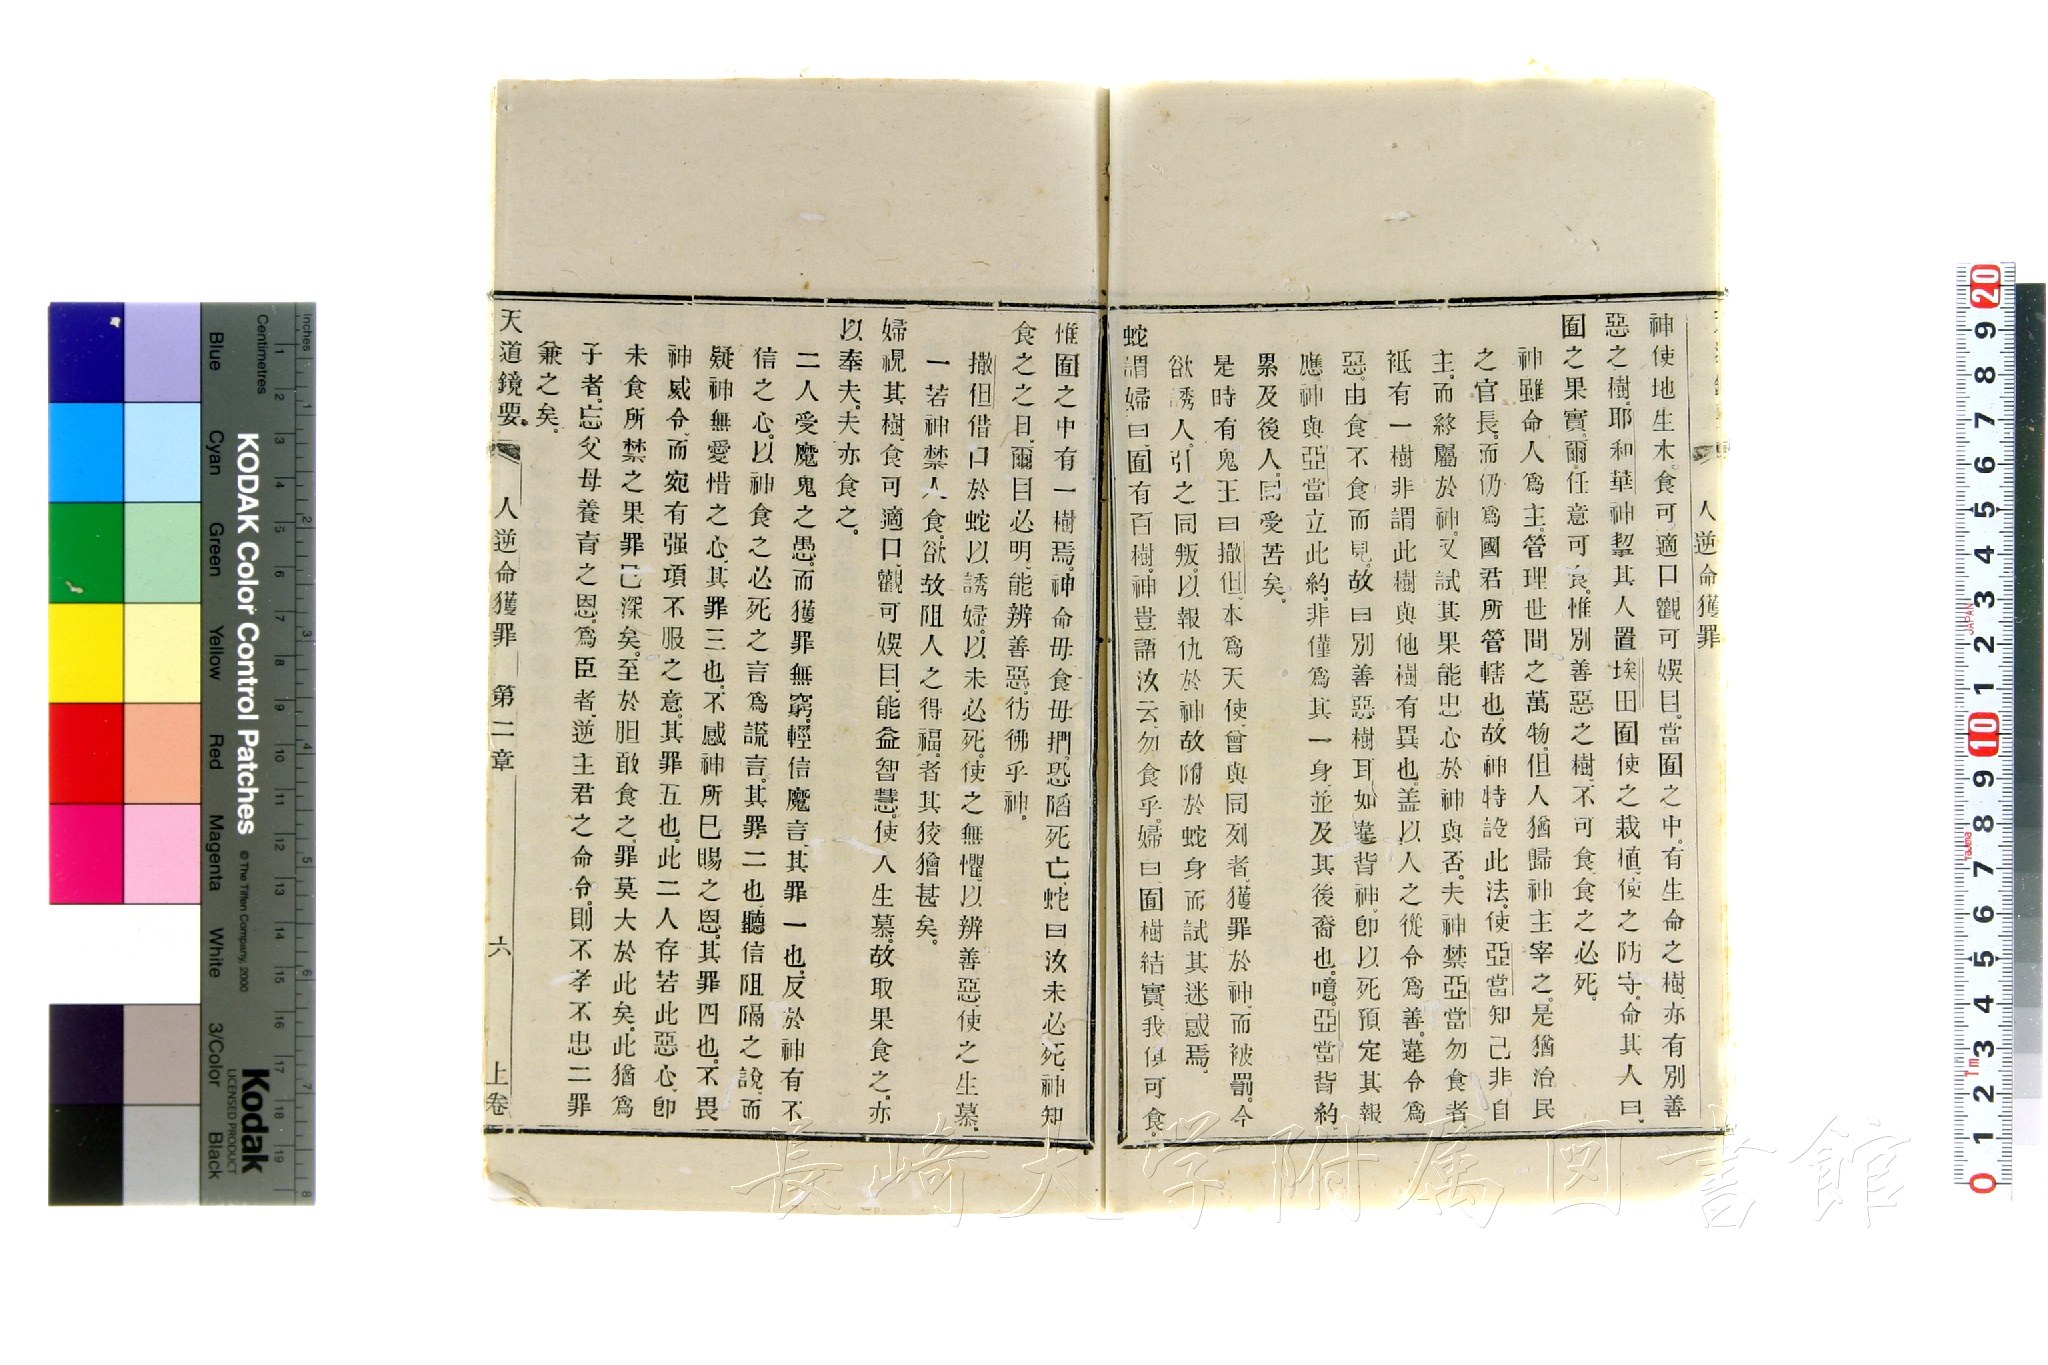 人逆命獲罪
神使地生木。食可適口、觀可娛目。當囿之中。有生命之樹、亦有別善
惡之樹、耶和華神挈其人置埃田囿使之栽植、使之防守。命其人曰、
囿之果實、爾任意可食、惟別善惡之樹不可食、食之必死。
神雖命人爲主。管理世間之萬物、但人猶歸神主宰之。是猶治民
之官長。而仍爲國君所管轄也、故神特設此法。使亞當知己非自
主。而終屬於神。又試其果能忠心於神與否。夫神禁亞當勿食者
祗有一樹非謂此樹與他樹有異也、盖以人之從令爲善。違令爲
惡。由食不食而見。故曰別善惡樹耳、如違背神、卽以死預定其報
應。神與亞當立此約。非僅爲其一身、並及其後裔也、噫。亞當背約、
累及後人、同受苦矣。
是時有鬼王曰撒但、本爲天使、曾與同列者、獲罪於神、而被罰。今
欲誘人。引之同叛。以報仇於神故附於蛇身而試其迷惑焉。
蛇謂婦曰、囿有百樹。神豈語汝云、勿食乎。婦曰、囿樹結實、我俱可食。
惟囿之中有一樹焉。神命毋食毋捫。恐陷死亡、蛇曰汝未必死、神知
食之之日、爾目必明、能辨善惡、彷彿乎神。
撒但借口於蛇以誘婦。以未必死。使之無懼、以辨善惡、使之生慕。
一若神禁人食。欲故阻人之得福者其狡獪甚矣。
婦視其樹、食可適口、觀可娛目、能益智慧、使人生慕。故取果食之、亦
以奉夫。夫亦食之。
二人受魔鬼之愚。而獲罪無窮。輕信魔言、其罪一也、反於神有不
信之心、以神食之必死之言爲謊言。其罪二也、聽信阻隔之說、而
疑神無愛惜之心、其罪三也、不感神所已賜之恩。其罪四也、不畏
神威令、而宛有强項不服之意、其罪五也、此二人存若此惡心、卽
未食所禁之果、罪已深矣。至於胆敢食之、罪莫大於此矣。此猶爲
子者、忘父母養育之恩、爲臣者、逆主君之命令。則不孝不忠二罪
兼之矣。
天道鏡要。 人逆命獲罪 第二章 六 上卷
長崎大学附属図書館